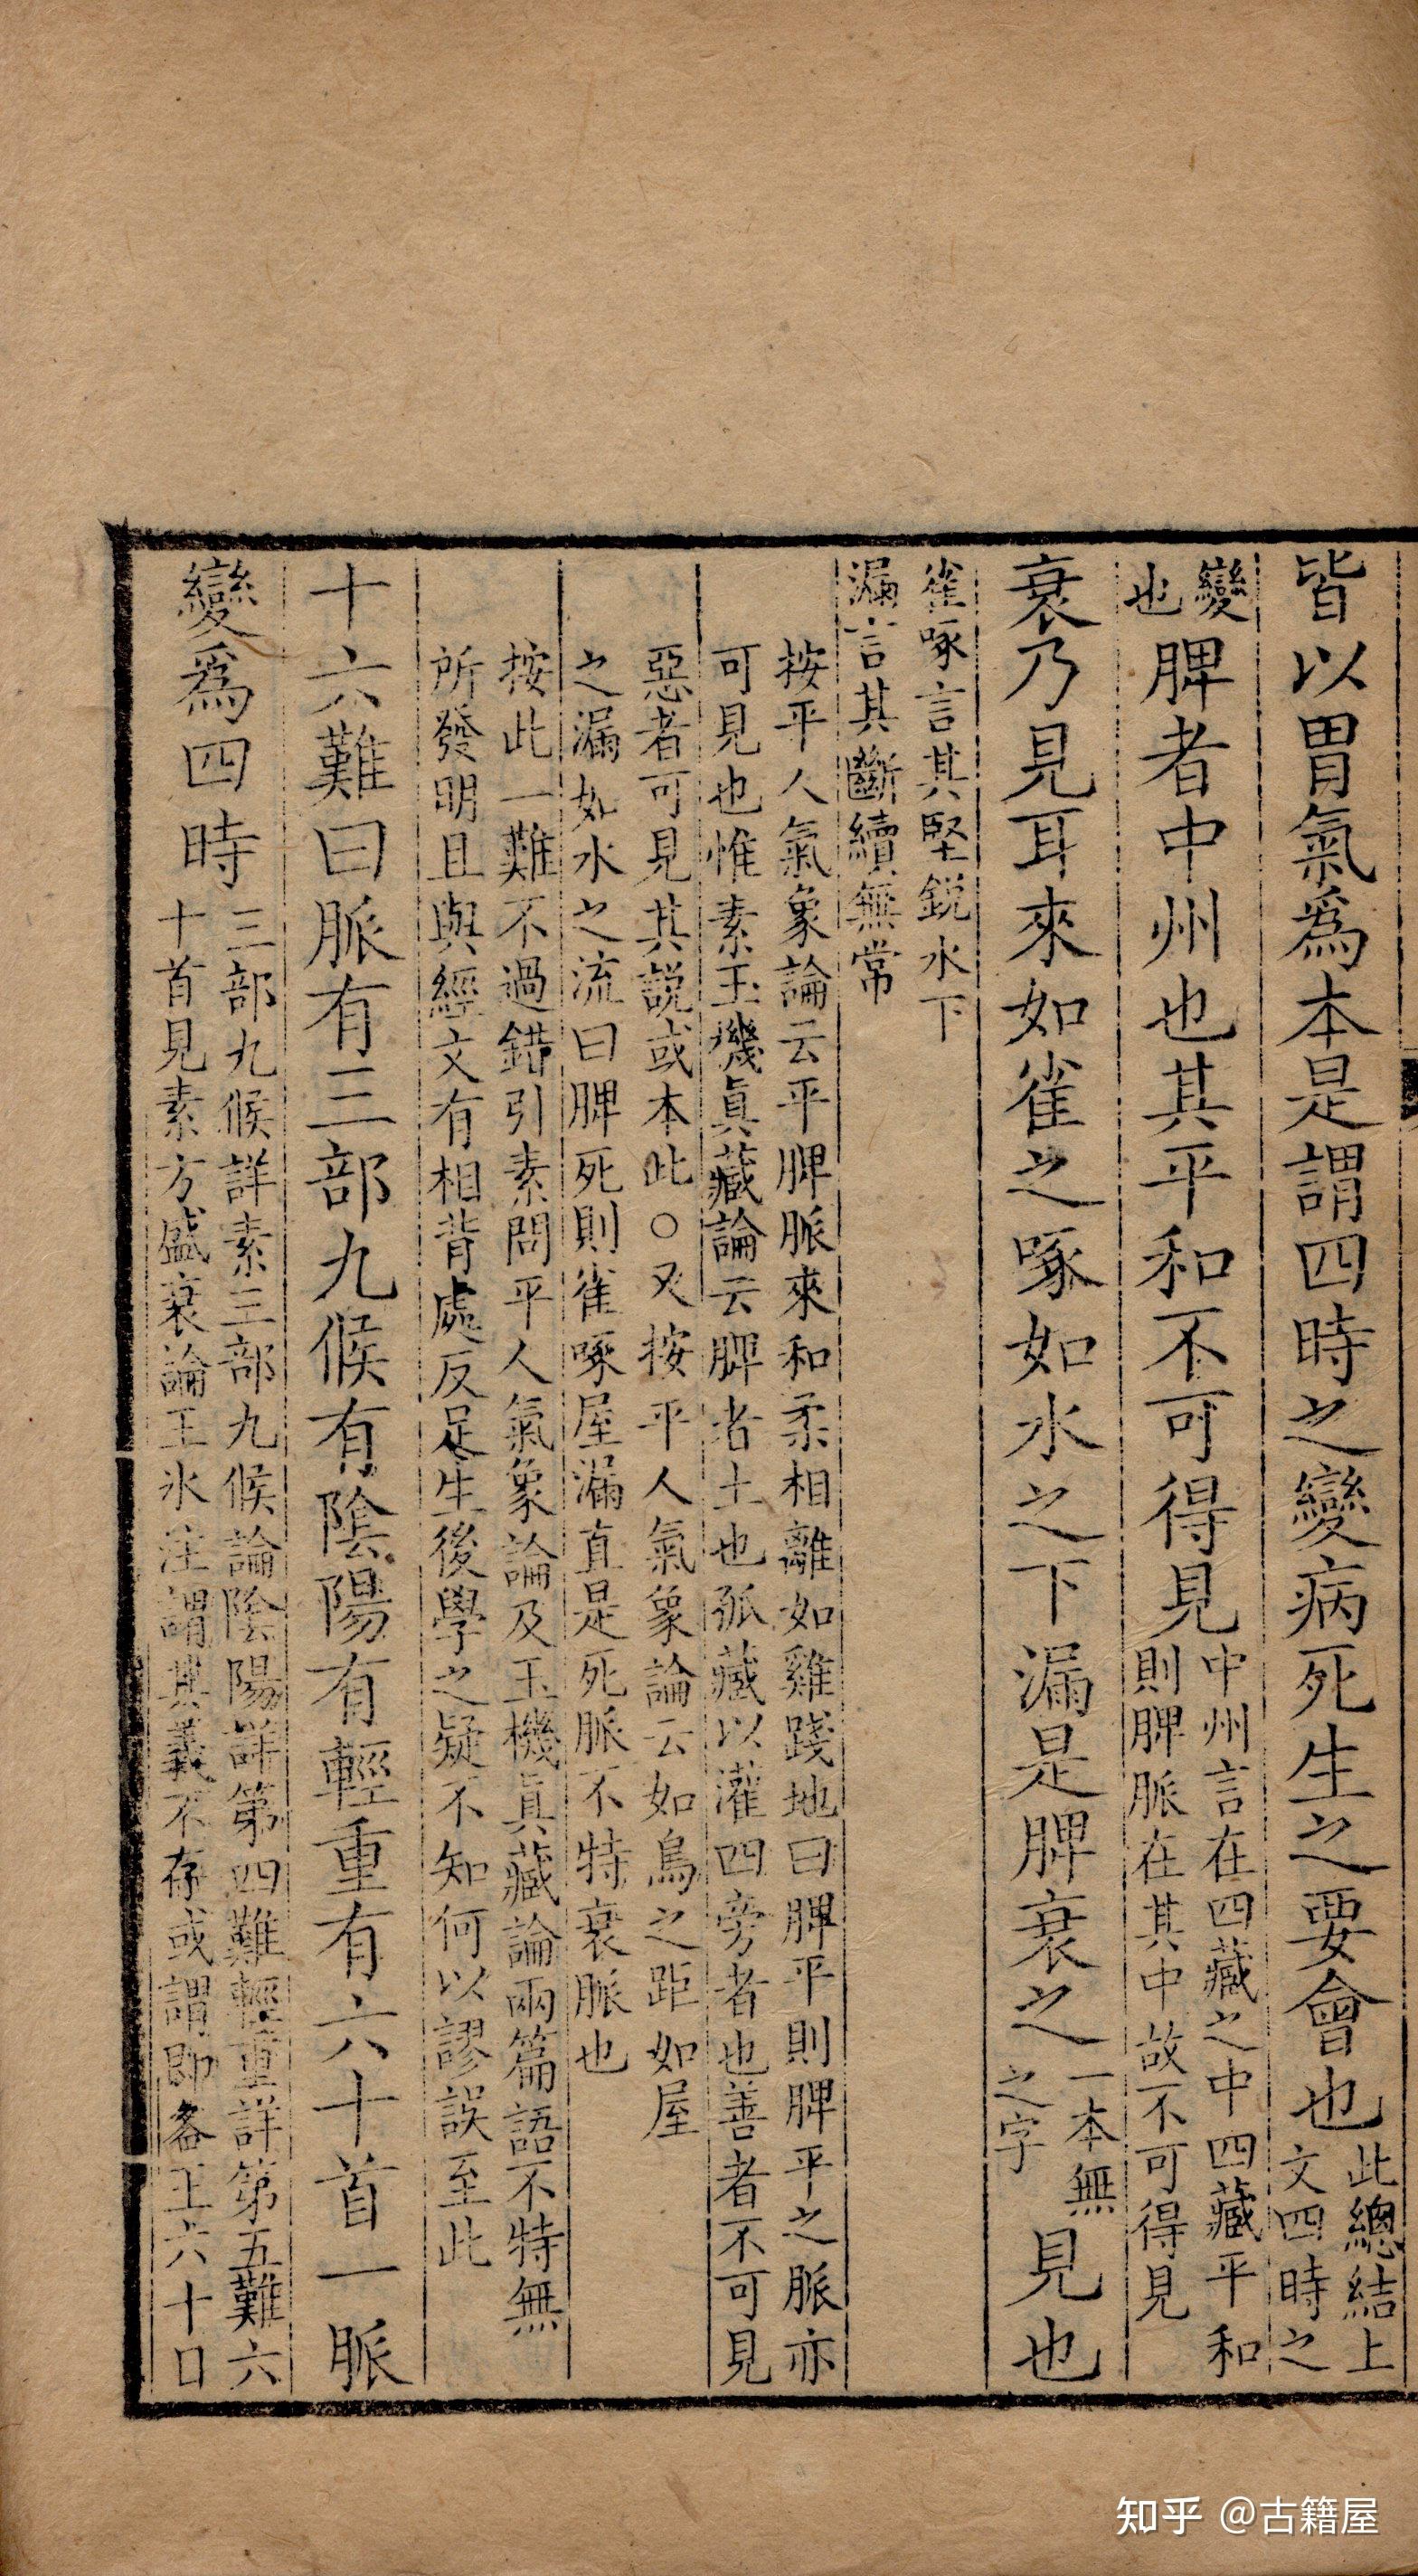 皆以胃氣爲本是謂四時之變病死生之要會也此總結上
文四時之
變
也脾者中州也其平和不可得見中州言在四藏之中四藏平和
則脾脈在其中故不可得見
衰乃見耳來如雀之啄如水之下漏是脾衰之一本無
之字見也
雀啄言其堅銳水下
漏言其斷續無常
按平人氣象論云平脾脈來和柔相離如雞踐地曰脾平則脾平之脈亦
可見也惟素玉機真藏論云脾者土也孤藏以灌四旁者也善者不可見
惡者可見其説或本此○又按平人氣象論云如鳥之距如屋
之漏如水之流曰脾死則雀啄屋漏直是死脈不特衰脈也
按此一難不過錯引素問平人氣象論及玉機真藏論兩篇語不特無
所發明且與經文有相背處反足生後學之疑不知何以謬誤至此
十六難曰脈有三部九候有陰陽有輕重有六十首一脈
變爲四時三部九候詳素三部九候論陰陽詳第四難輕重詳第五難六
十首見素方盛衰論王氷注謂其義不存或謂即各王六十日
知乎 @古籍屋